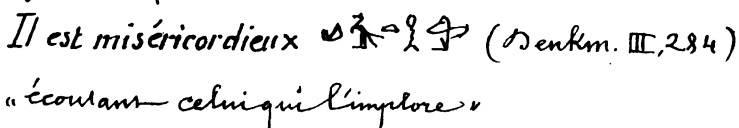 Il est miséricordieux (Denkm. III, 284)
« écoutant celui qui l'implore »